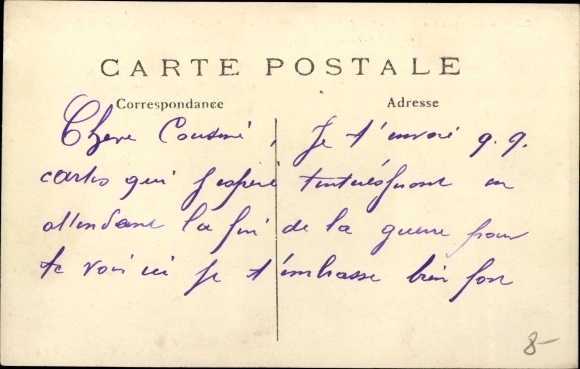 CARTE POSTALE
Correspondance
Adresse
Chere Cousine, Je t'envoie q.q.
cartes qui j'espere t'interesseront en
attendant la fin de la guerre pour
te voir ici je t'embrasse bien fort
8-